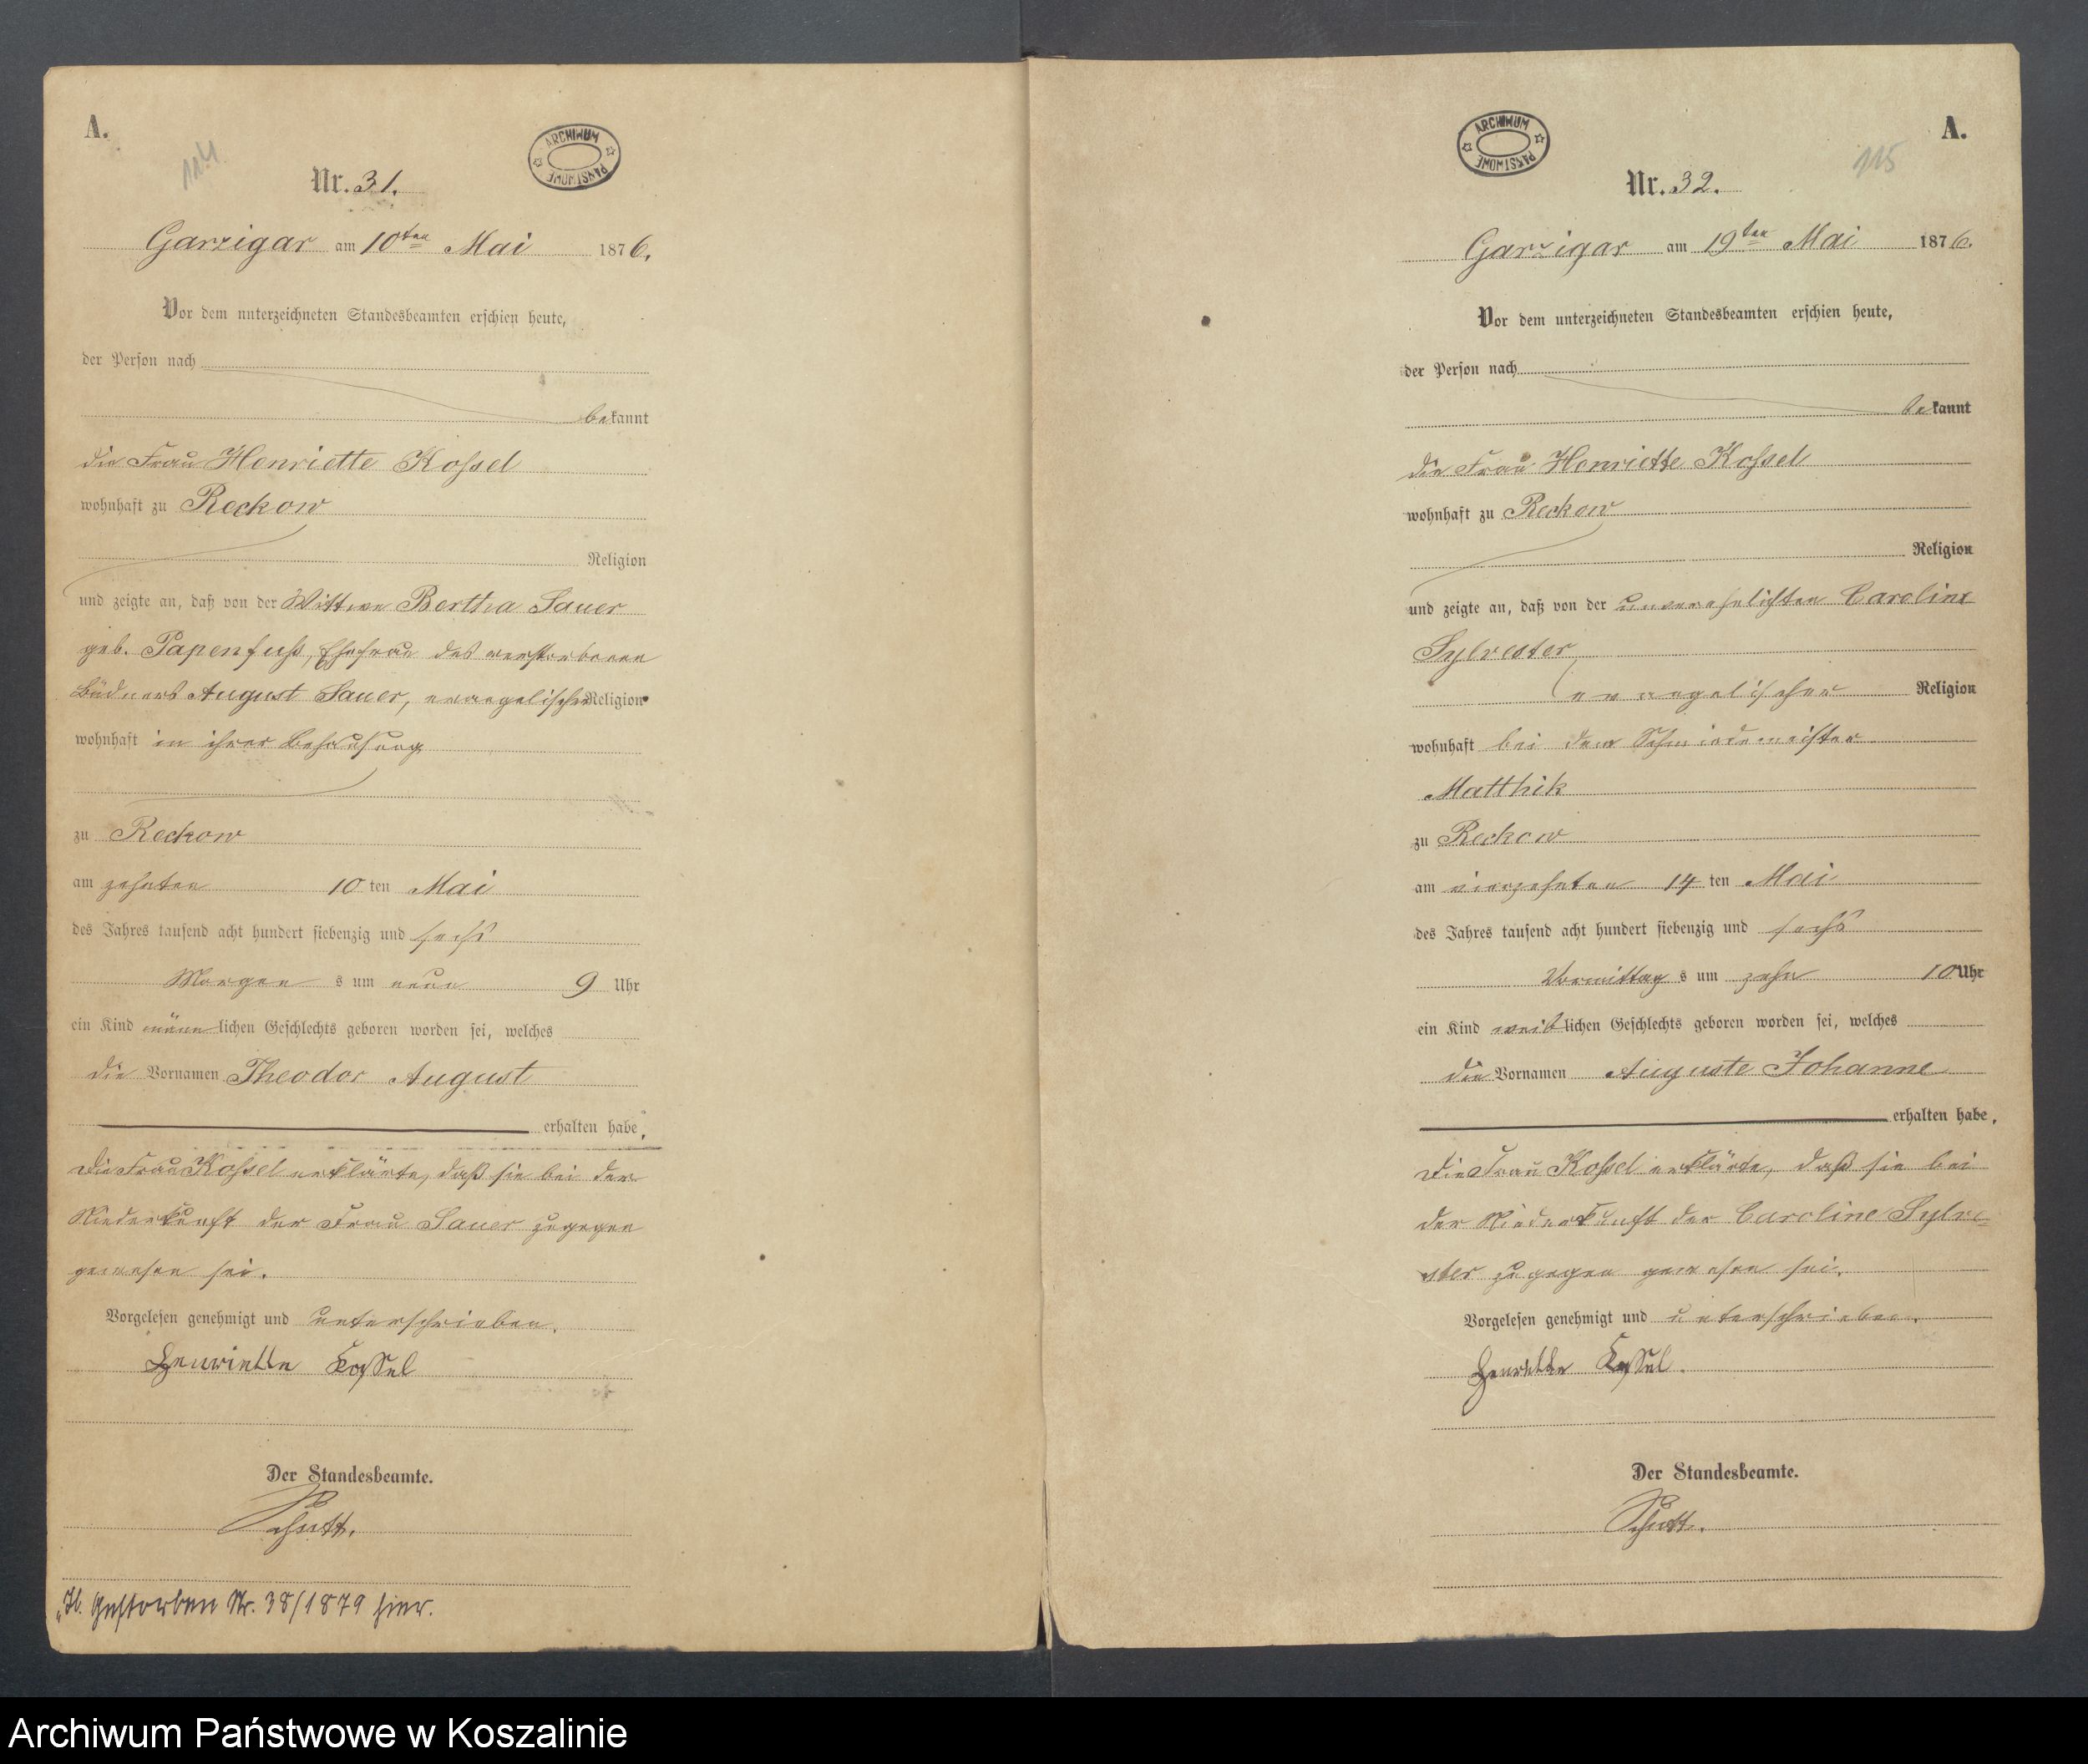 A.
114
ARCHIWUM PAŃSTWOWE
Nr. 31.
Garzigar am 10ten Mai 1876.
Vor dem unterzeichneten Standesbeamten erschien heute,
der Person nach
bekannt
die Frau Henriette Kossel
wohnhaft zu Reckow
Religion
und zeigte an, daß von der Wittwe Bertha Sauer
geb. Papenfuß, Ehefrau des verstorbenen
Büdners August Sauer, evangelischer Religion
wohnhaft in ihrer Behausung
zu Reckow
am zehnten 10 ten Mai
des Jahres tausend acht hundert siebenzig und sechs
Morgens um neun 9 Uhr
ein Kind männlichen Geschlechts geboren worden sei, welches
die Vornamen Theodor August
erhalten habe.
Die Frau Kossel erklärte, daß sie bei der
Niederkunft der Frau Sauer zugegen
gewesen sei.
Vorgelesen genehmigt und unterschrieben.
Henriette Kossel
Der Standesbeamte.
Schutt.
Gestorben Nr. 38/1879 hier.
A.
115
ARCHIWUM PAŃSTWOWE
Nr. 32.
Garzigar am 19ten Mai 1876.
Vor dem unterzeichneten Standesbeamten erschien heute,
der Person nach
bekannt
die Frau Henriette Kossel
wohnhaft zu Reckow
Religion
und zeigte an, daß von der unverehelichten Caroline
Sylvester
evangelischer Religion
wohnhaft bei dem Schmiedemeister
Matthik
zu Reckow
am vierzehnten 14 ten Mai
des Jahres tausend acht hundert siebenzig und sechs
Vormittags um zehn 10 Uhr
ein Kind weiblichen Geschlechts geboren worden sei, welches
die Vornamen Auguste Johanne
erhalten habe.
Die Frau Kossel erklärte, daß sie bei
der Niederkunft der Caroline Sylve-
ster zugegen gewesen sei.
Vorgelesen genehmigt und unterschrieben.
Henriette Kossel.
Der Standesbeamte.
Schutt.
Archiwum Państwowe w Koszalinie